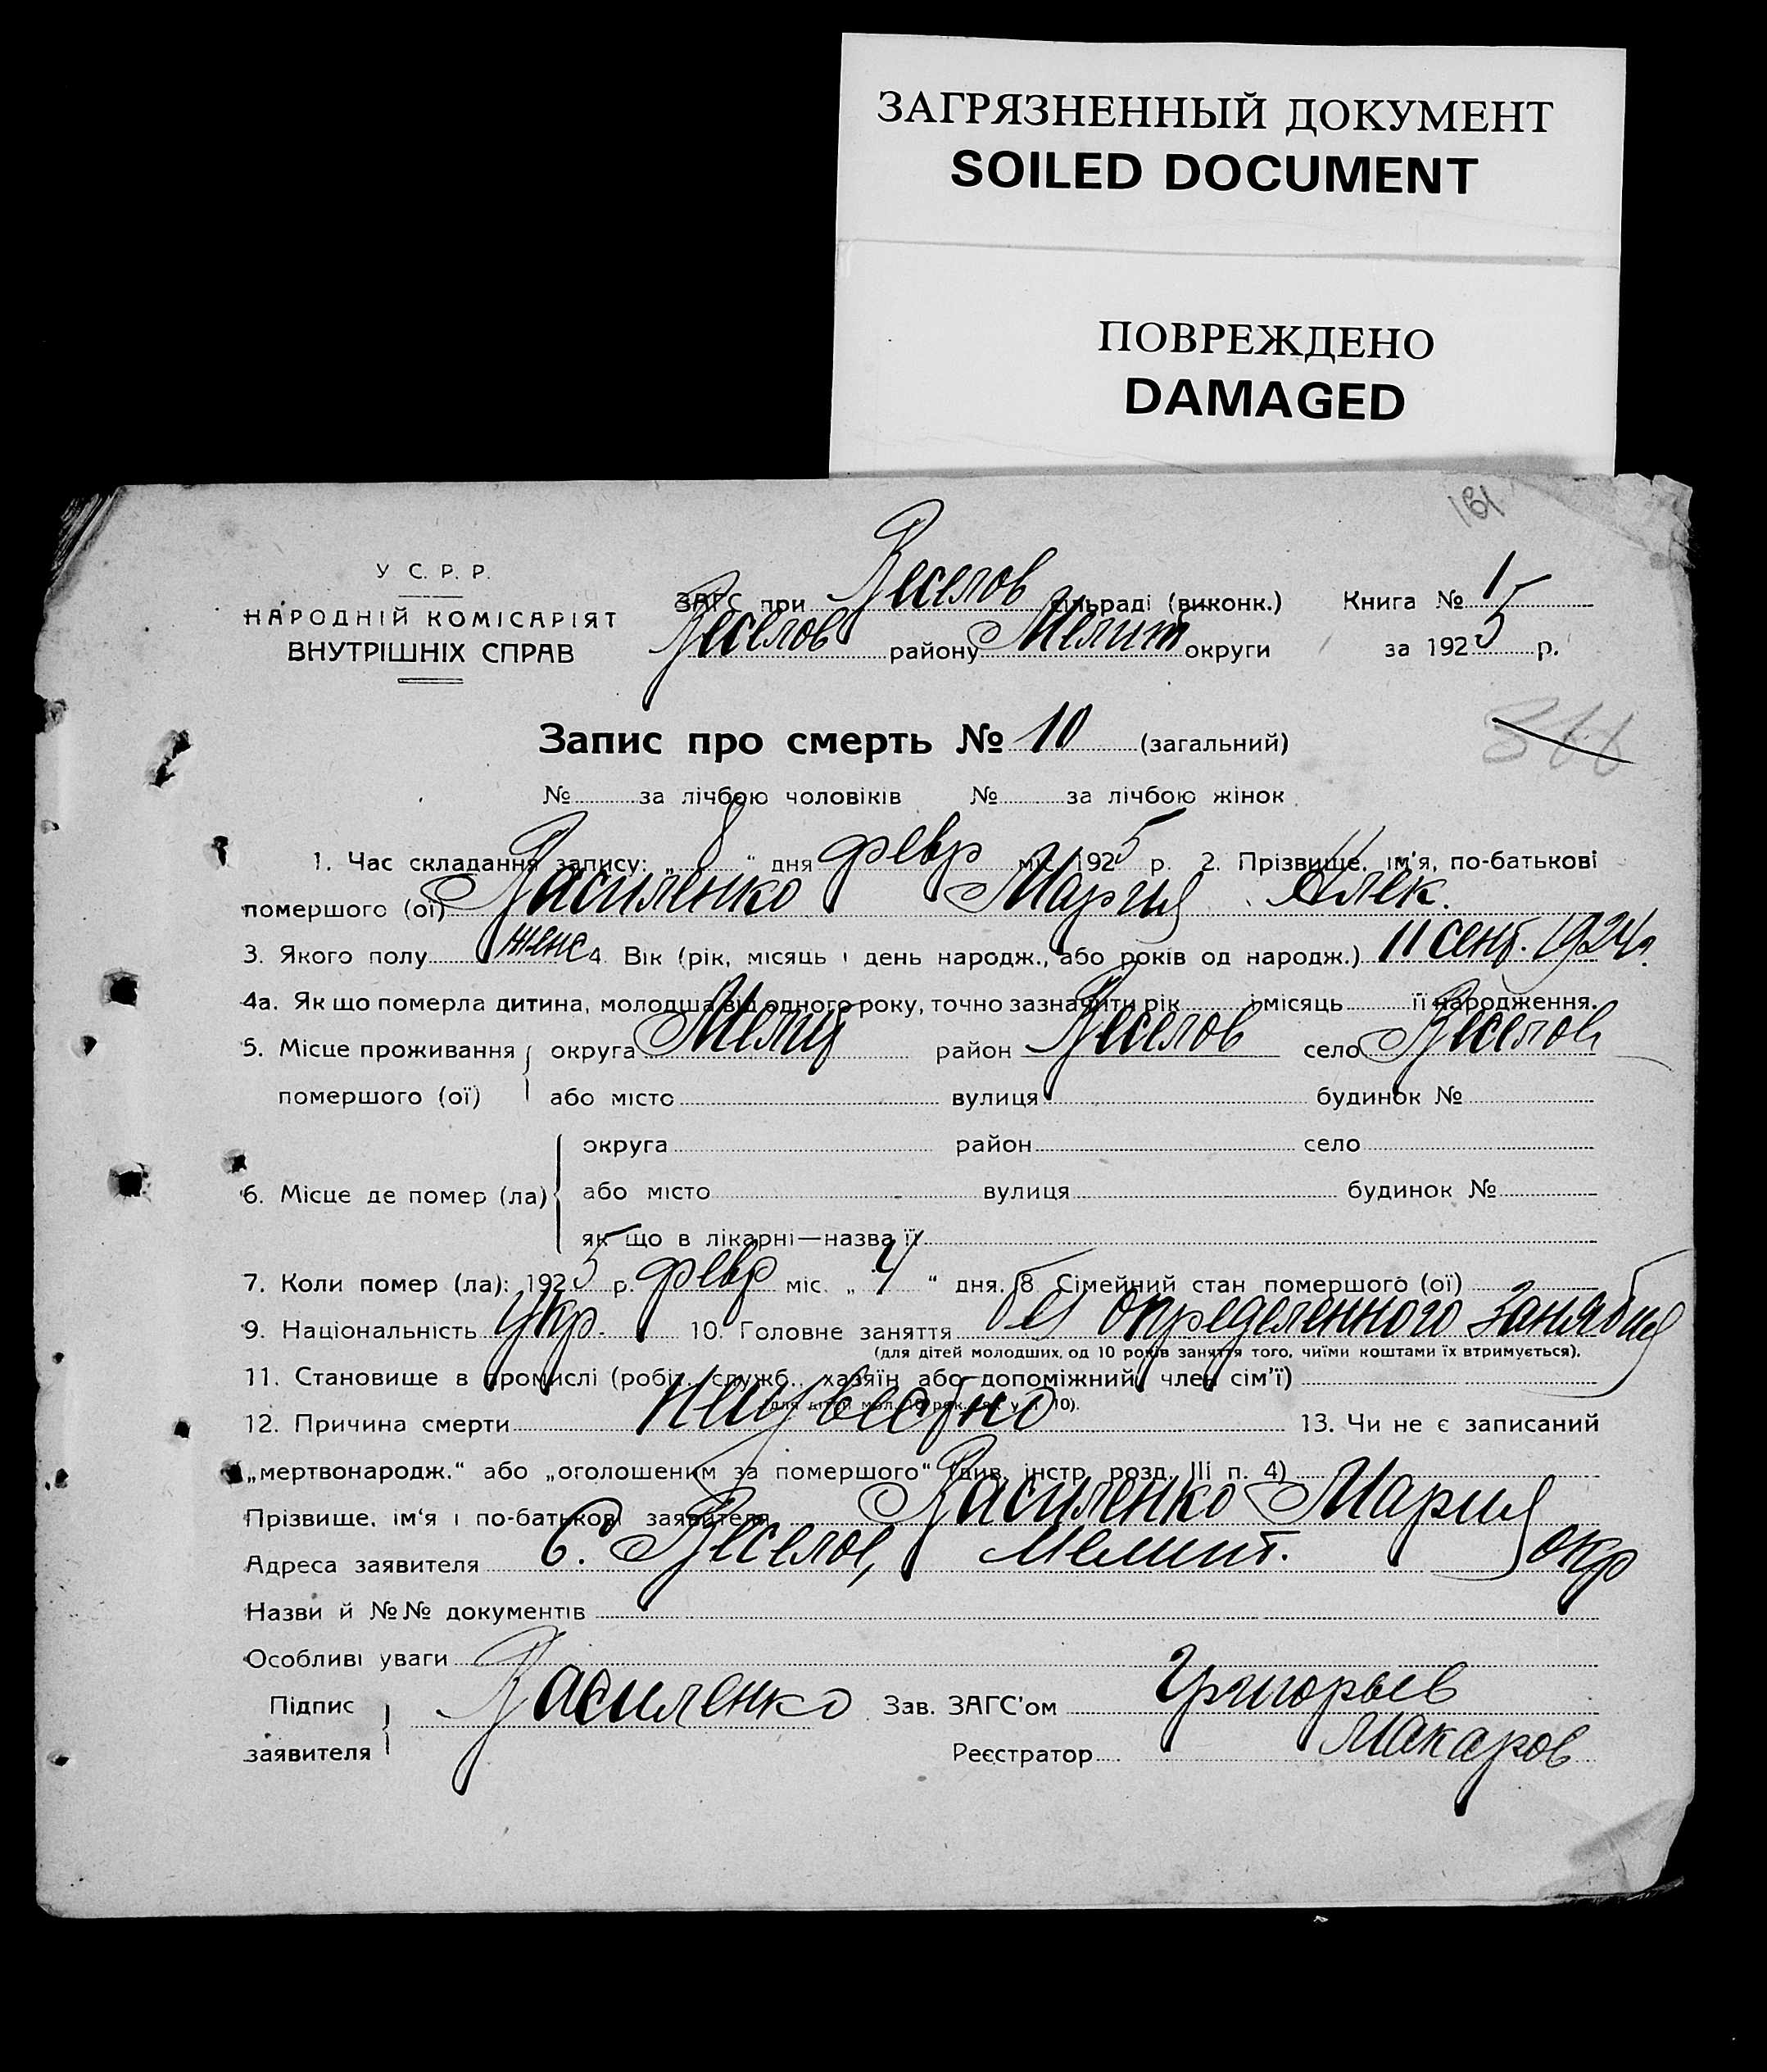 ЗАГРЯЗНЕННЫЙ ДОКУМЕНТ
SOILED DOCUMENT
ПОВРЕЖДЕНО
DAMAGED
161
У С. Р. Р.
НАРОДНІЙ КОМІСАРІЯТ
ВНУТРІШНІХ СПРАВ
ЗАГС при Веселов сільраді (виконк.) Книга № 1
Веселов району Мелит округи за 1925 р.
Запис про смерть № 10 (загальний)
366
№ за лічбою чоловіків № за лічбою жінок
1. Час складання запису: „ 8 “ дня февр міс. 1925 р. 2. Прізвище, ім'я, по-батькові
помершого (ої) Василенко Мария Алек.
3. Якого полу женс 4. Вік (рік, місяць і день народж., або років од народж.) 11 сент. 1924 г.
4а. Як що померла дитина, молодша від одного року, точно зазначити рік і місяць її народження.
5. Місце проживання округа Мелит район Веселов село Веселов
помершого (ої) або місто вулиця будинок №
округа район село
6. Місце де помер (ла) або місто вулиця будинок №
як що в лікарні—назва її
7. Коли помер (ла): 1925 р. февр міс. „ 4 “ дня. 8. Сімейний стан помершого (ої)
9. Національність Укр. 10. Головне заняття без определенного занятия
(для дітей молодших, од 10 років заняття того, чиїми коштами їх втримується).
11. Становище в промислі (робіт., служб., хазяїн або допоміжний член сім'ї)
(для дітей мол. 10 рок. як у п. 10).
12. Причина смерти Неизвестно 13. Чи не є записаний
„мертвонародж.“ або „оголошеним за помершого“ (див. інстр. розд. III п. 4)
Прізвище, ім'я і по-батькові заявителя Василенко Мария
Адреса заявителя С. Веселое, Мелит. окр
Назви й №№ документів
Особливі уваги
Підпис Василенко Зав. ЗАГС'ом Григорьев
заявителя Реєстратор Макаров